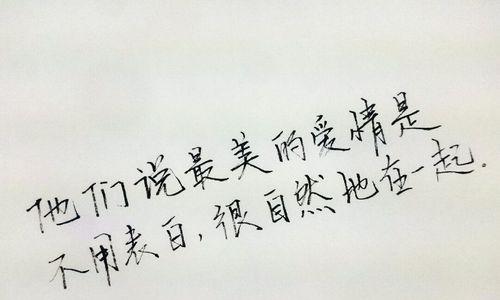 他们说最美的爱情是
不用表白,很自然地在一起.